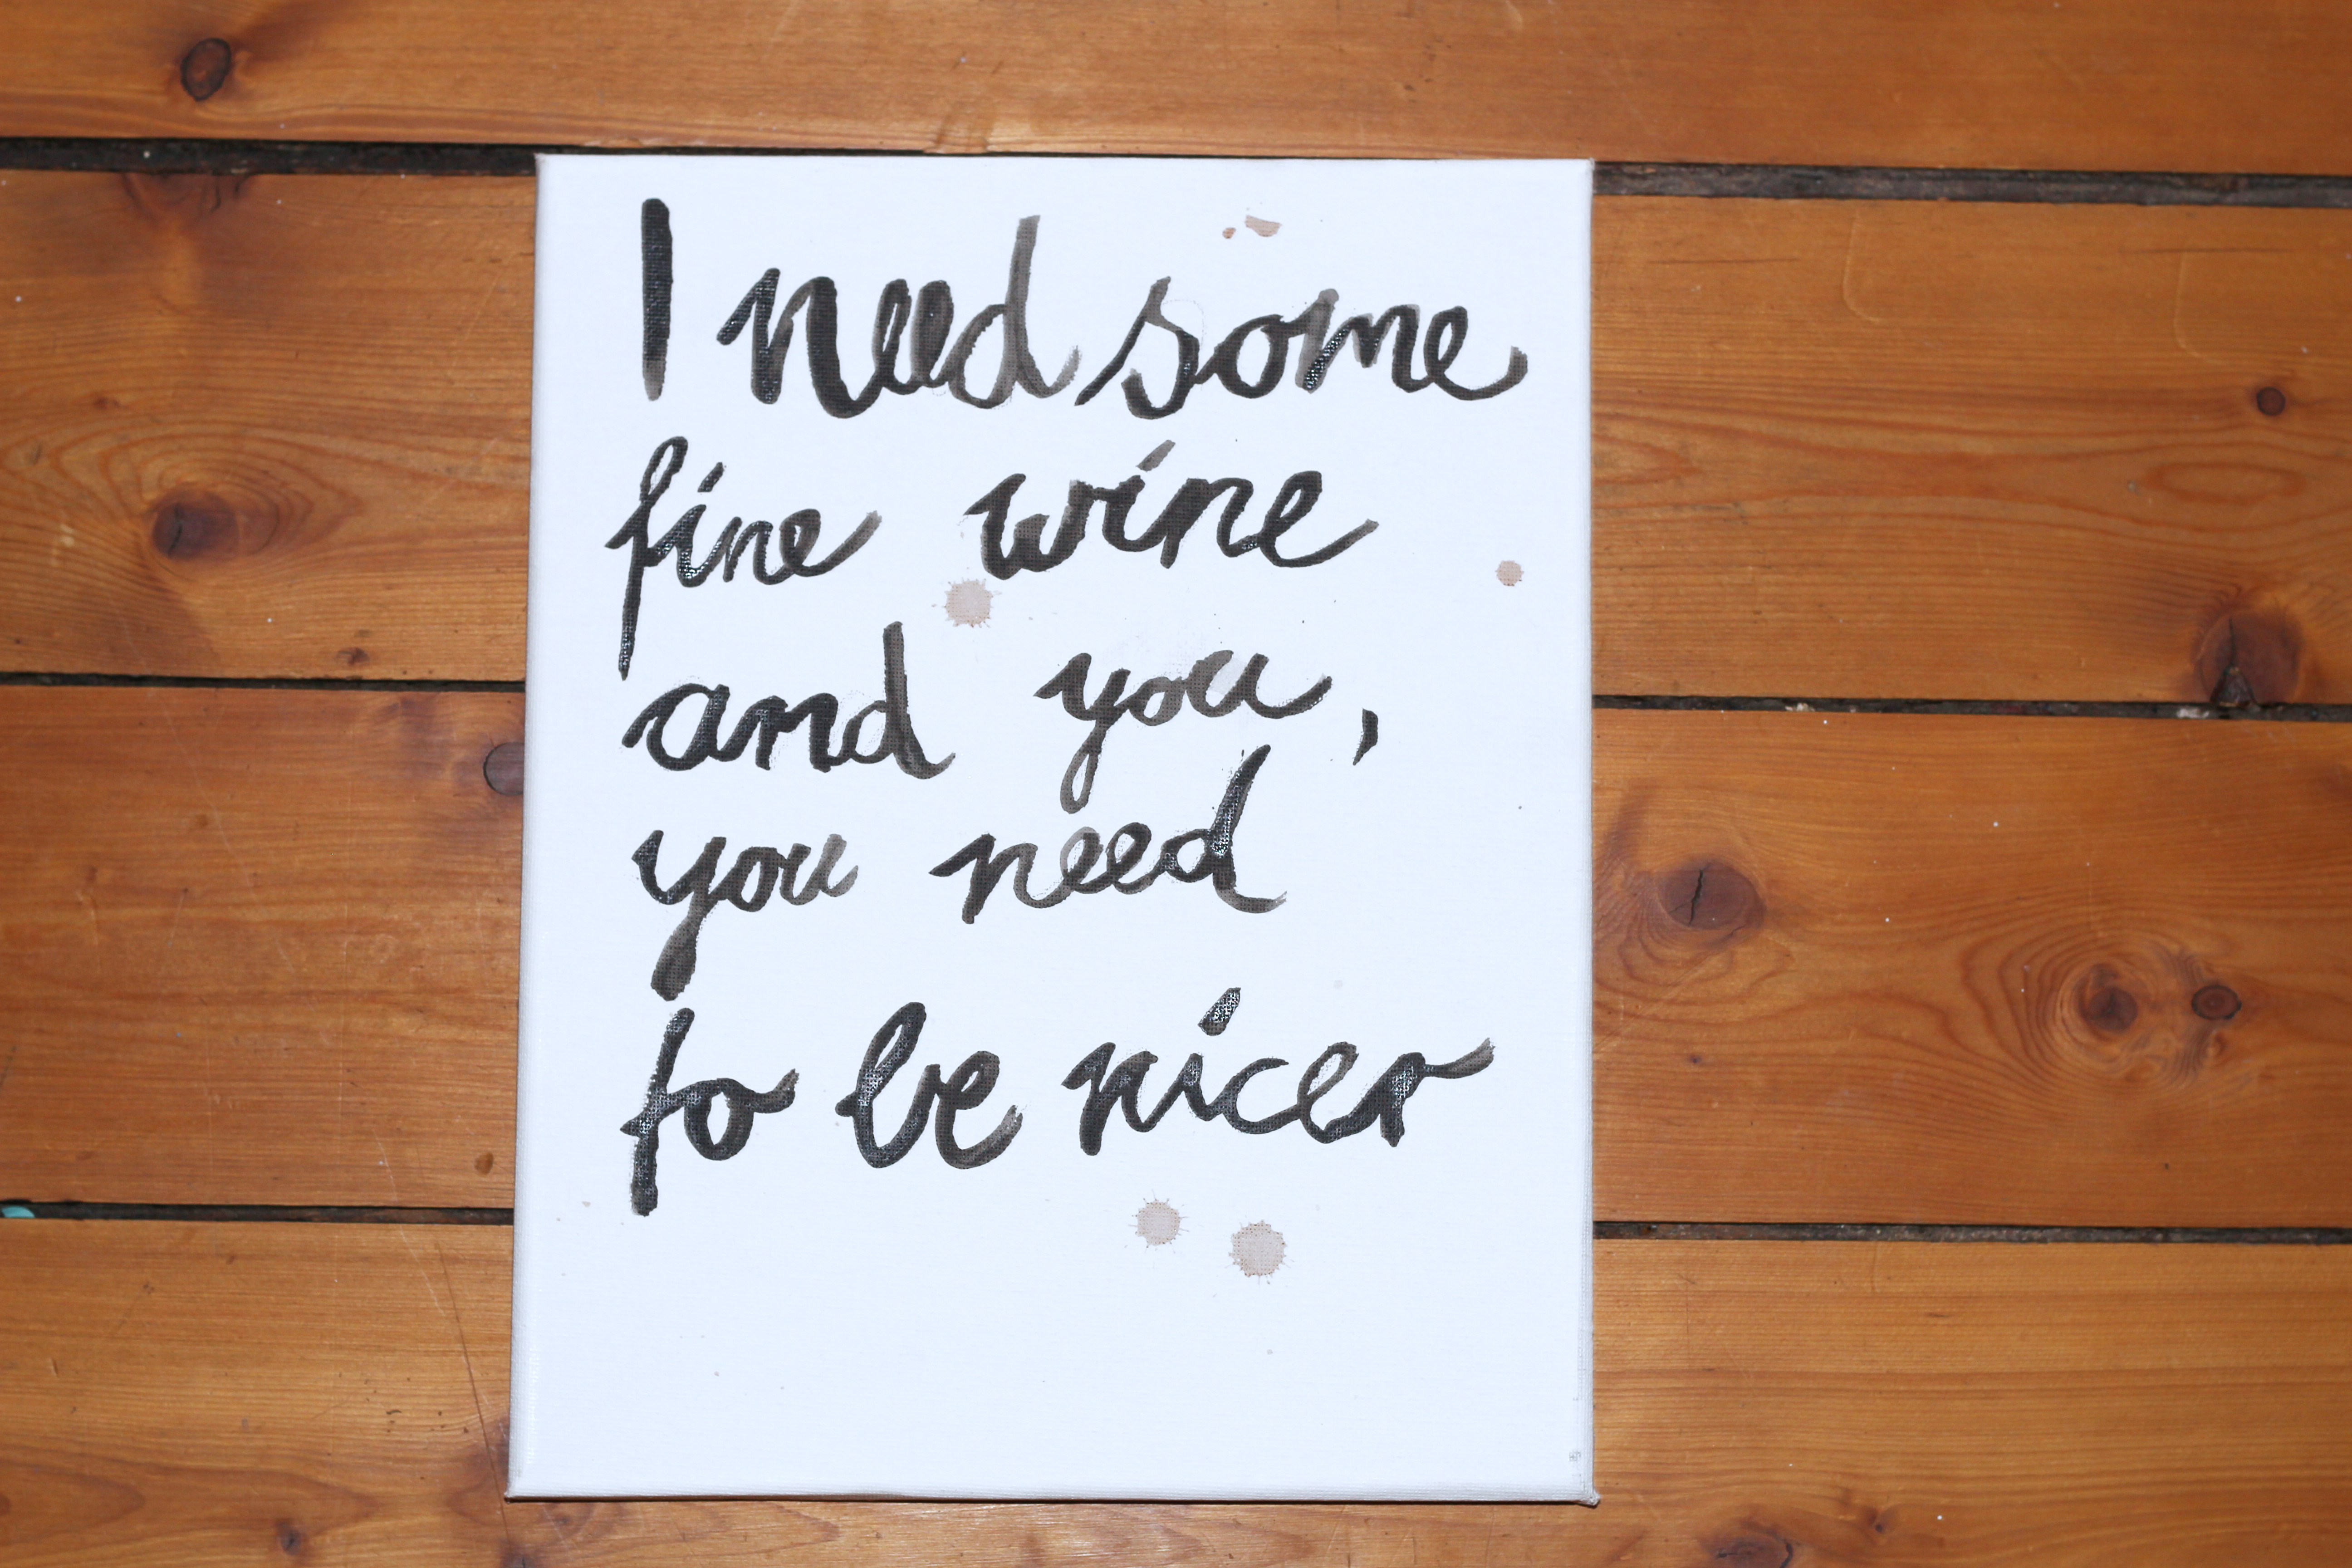 I need some
fine wine
and you,
you need
to be nicer